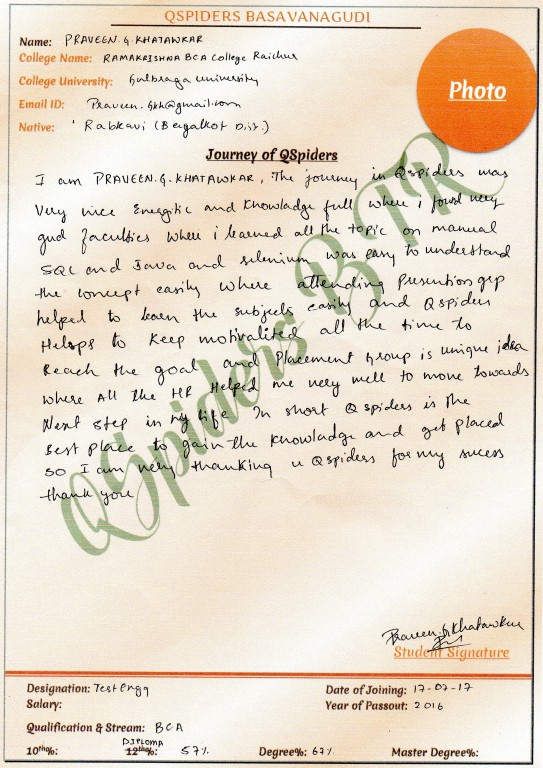 QSPIDERS BASAVANAGUDI
Name: PRAVEEN.G.KHATAWKAR
College Name: RAMAKRISHNA BCA College Raichur
College University: Gulbraga university
Email ID: Praveen.gkh@gmail.com
Native: Rabkavi (Bergalkot Dist.)
Photo
Journey of QSpiders
I am PRAVEEN.G.KHATAWKAR, The journey in Qspiders was
Very nice Eneggitic and Knowladge full where i found very
gud faculties when i learned all the topic on manual
SQL and Java and selenium was easy to understand
the concept easily where attending Presention grp
helped to learn the subjects easily and Qspiders
Helps to keep motivalited all the time to
Reach the goal and Placement Group is unique idea
where All the HR Helped me very well to move towards
Next step in my life In short Qspiders is the
Best place to gain the Knowladge and get placed
so I am very thanking u Qspiders for my sucess
thank you
QSpiders BTR
Praveen.G.Khatawkar
Student Signature
Designation: Test Engg
Date of Joining: 17-07-17
Salary:
Year of Passout: 2016
Qualification & Stream: BCA
10th%: DIPLOMA 12th%: 57% Degree%: 67% Master Degree%: